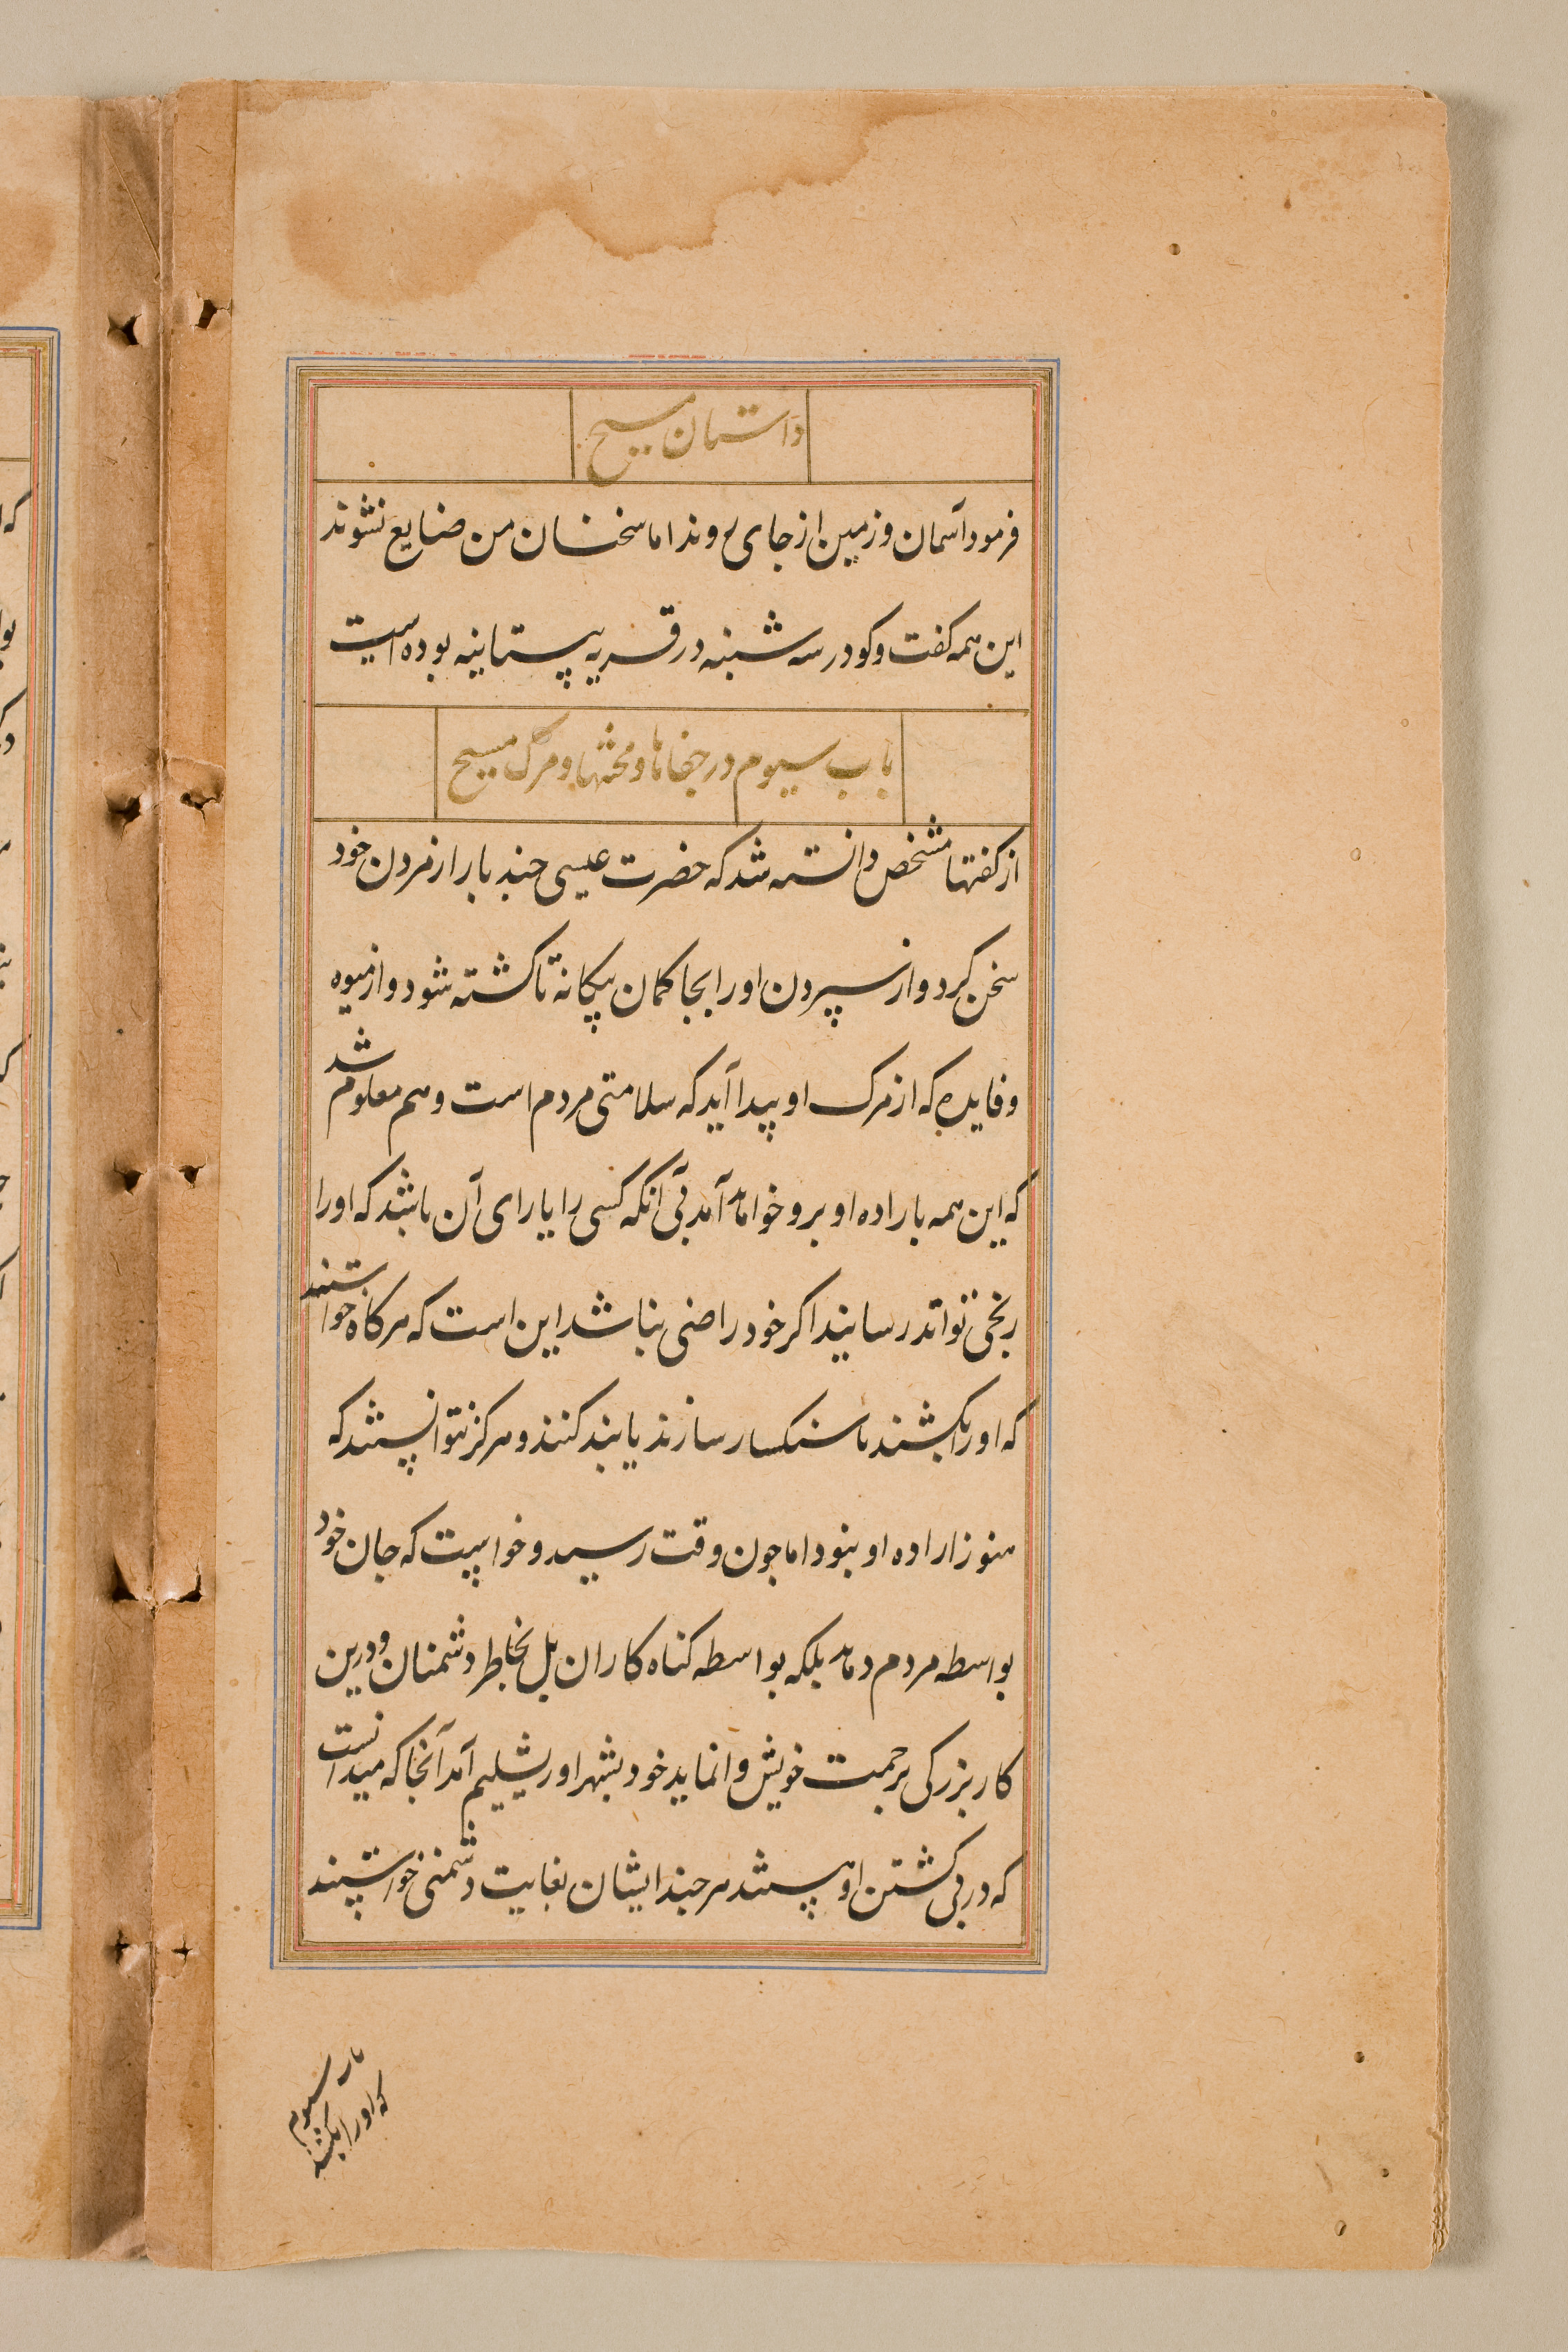 داستان مسیح
فرمود آسمان و زمین از جای روند اما سخنان من ضایع نشوند
این همه کفت و کو در سه شنبه در قریه بیستانیه بوده است
باب سیوم در جفاها و محنتها و مرک مسیح
از کفتها مشخص دانسته شد که حضرت عیسی جند بار از مردن خود
سخن کرد و از سپردن او را بحاکمان بیکانه تا کشته شود و از میوه
و فایده که از مرک او پیدا آید که سلامتی مردم است و هم معلوم شد
که این همه باراده او برو خواهد آمد بی آنکه کسی را یارای آن باشد که او را
رنجی تواند رسانید اکر خود راضی نباشد این است که هرکاه خواستند
که او را بکشند یا سنکسار سازند یا بند کنند و هرکز نتوانستند که
هنوز اراده او نبود اما جون وقت رسید و خواست که جان خود
بواسطه مردم دهد بلکه بواسطه کناه کاران بل بخاطر دشمنان و درین
کار بزرکی برحمت خویش وانماید خود بشهر اورشلیم آمد آنجا که میدانست
که در پی کشتن او هستند هرجند ایشان بغایت دشمنی خواستند
باب سیوم
که او را بکشند